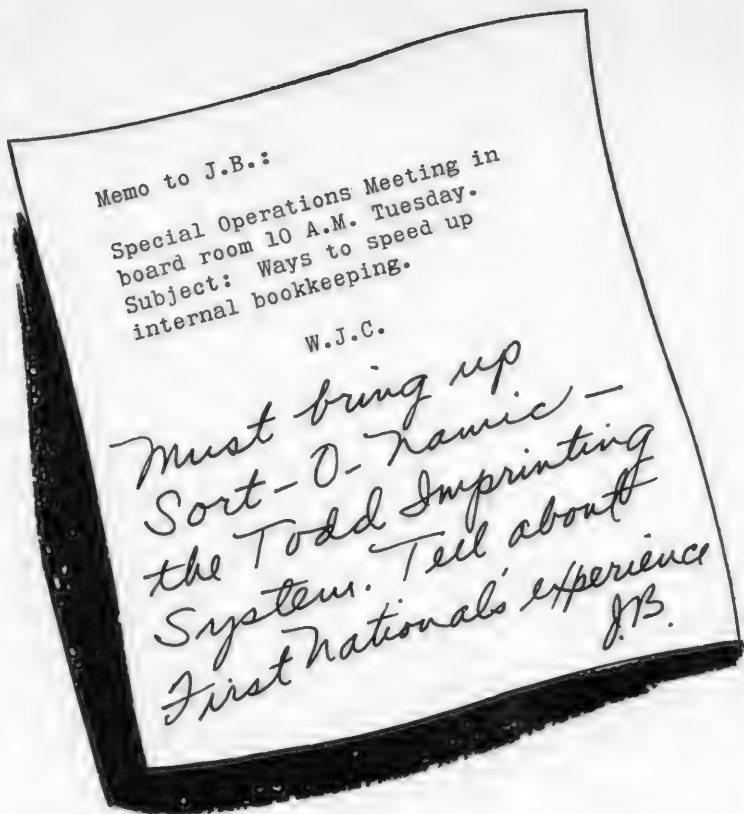 Memo to J.B.:
Special Operations Meeting in
board room 10 A.M. Tuesday.
Subject: Ways to speed up
internal bookkeeping.
W.J.C.
Must bring up
Sort-O-Namic —
the Todd Imprinting
System. Tell about
First National's experience
J.B.